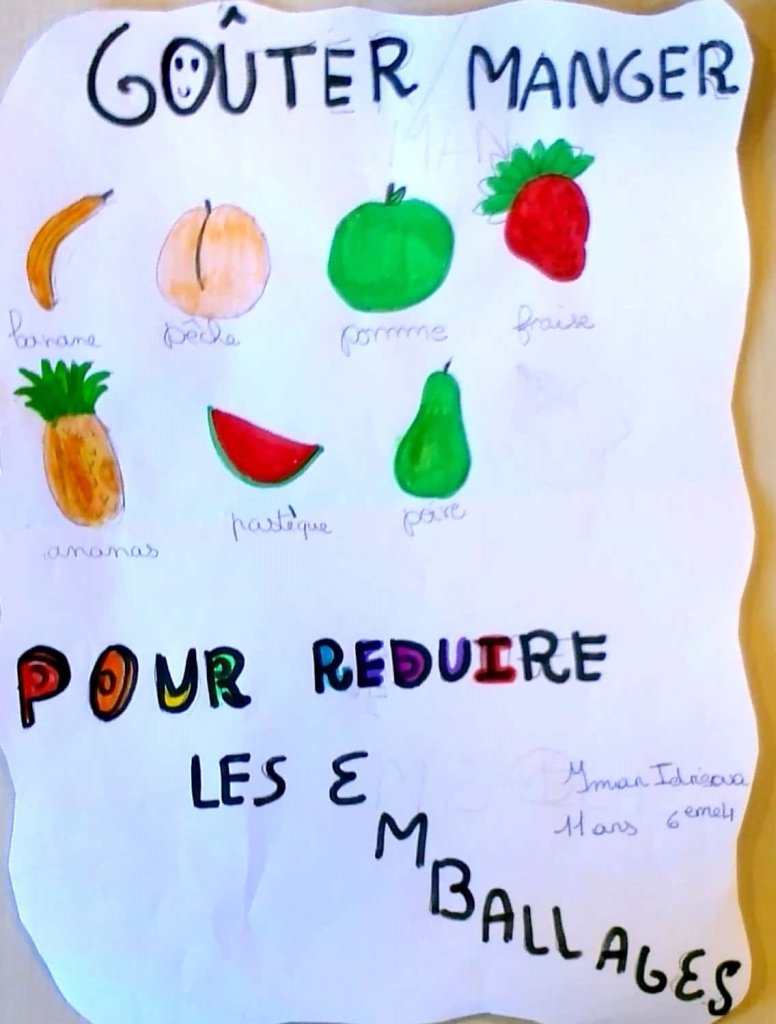 GOÛTER MANGER
banane pêche pomme fraise
ananas pastèque poire
POUR REDUIRE
LES EMBALLAGES
Iman Idrisova
11 ans 6eme4